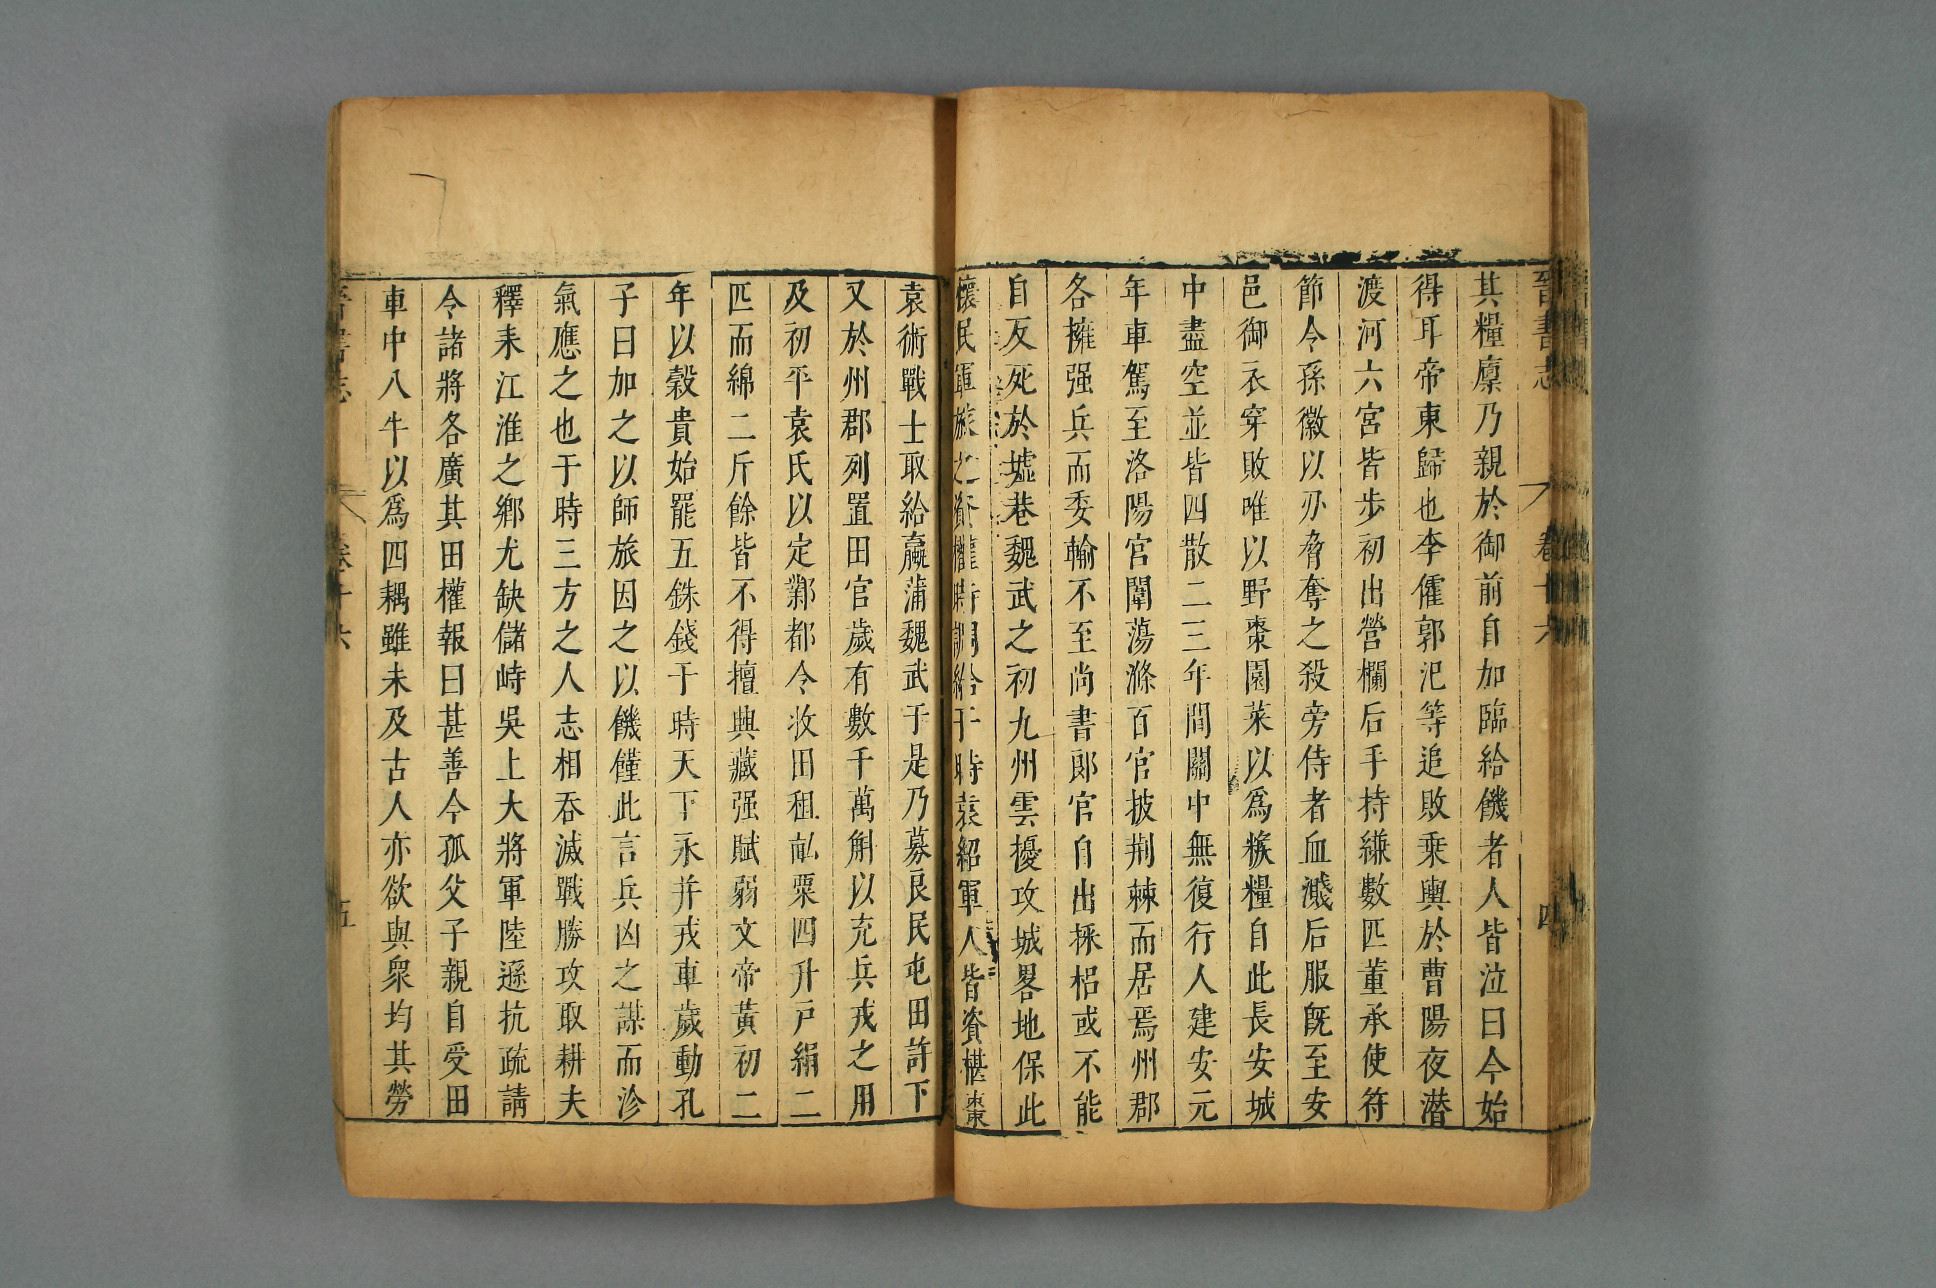 晉書志 卷十六 四
其糧廪乃親於御前自加臨給饑者人皆泣曰今始
得耳帝東歸也李傕郭汜等追敗乘輿於曹陽夜潛
渡河六宮皆步初出營欄后手持縑數匹董承使符
節令孫徽以刃脅奪之殺旁侍者血濺后服旣至安
邑御衣穿敗唯以野棗園菜以爲糇糧自此長安城
中盡空並皆四散二三年間關中無復行人建安元
年車駕至洛陽宮闈蕩滌百官披荆棘而居焉州郡
各擁强兵而委輸不至尚書郎官自出採梠或不能
自反死於墟巷魏武之初九州雲擾攻城畧地保此
懷民軍旅之資權時調給于時袁紹軍人皆資椹棗
袁術戰士取給蠃蒲魏武于是乃募良民屯田許下
又於州郡列置田官歲有數千萬斛以充兵戎之用
及初平袁氏以定鄴都令收田租畝粟四升戸絹二
匹而綿二斤餘皆不得擅興藏强賦弱文帝黃初二
年以穀貴始罷五銖錢于時天下未并戎車歲動孔
子曰加之以師旅因之以饑饉此言兵凶之謀而沴
氣應之也于時三方之人志相吞滅戰勝攻取耕夫
釋耒江淮之鄉尤缺儲峙吳上大將軍陸遜抗疏請
令諸將各廣其田權報曰甚善今孤父子親自受田
車中八牛以爲四耦雖未及古人亦欲與衆均其勞
晉書志 卷十六 五